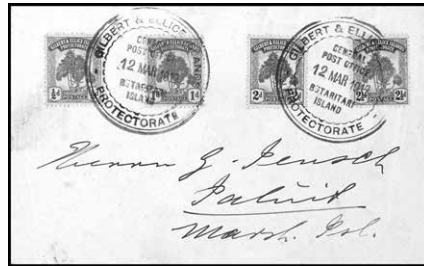 GILBERT & ELLICE
GENERAL
POST OFFICE
12 MAR
BUTARITARI
ISLAND
PROTECTORATE
½d
1d
GILBERT & ELLICE
GENERAL
POST OFFICE
12 MAR
BUTARITARI
ISLAND
PROTECTORATE
2d
2½d
Herrn G. Jensch
Jaluit
Marsh. Isl.